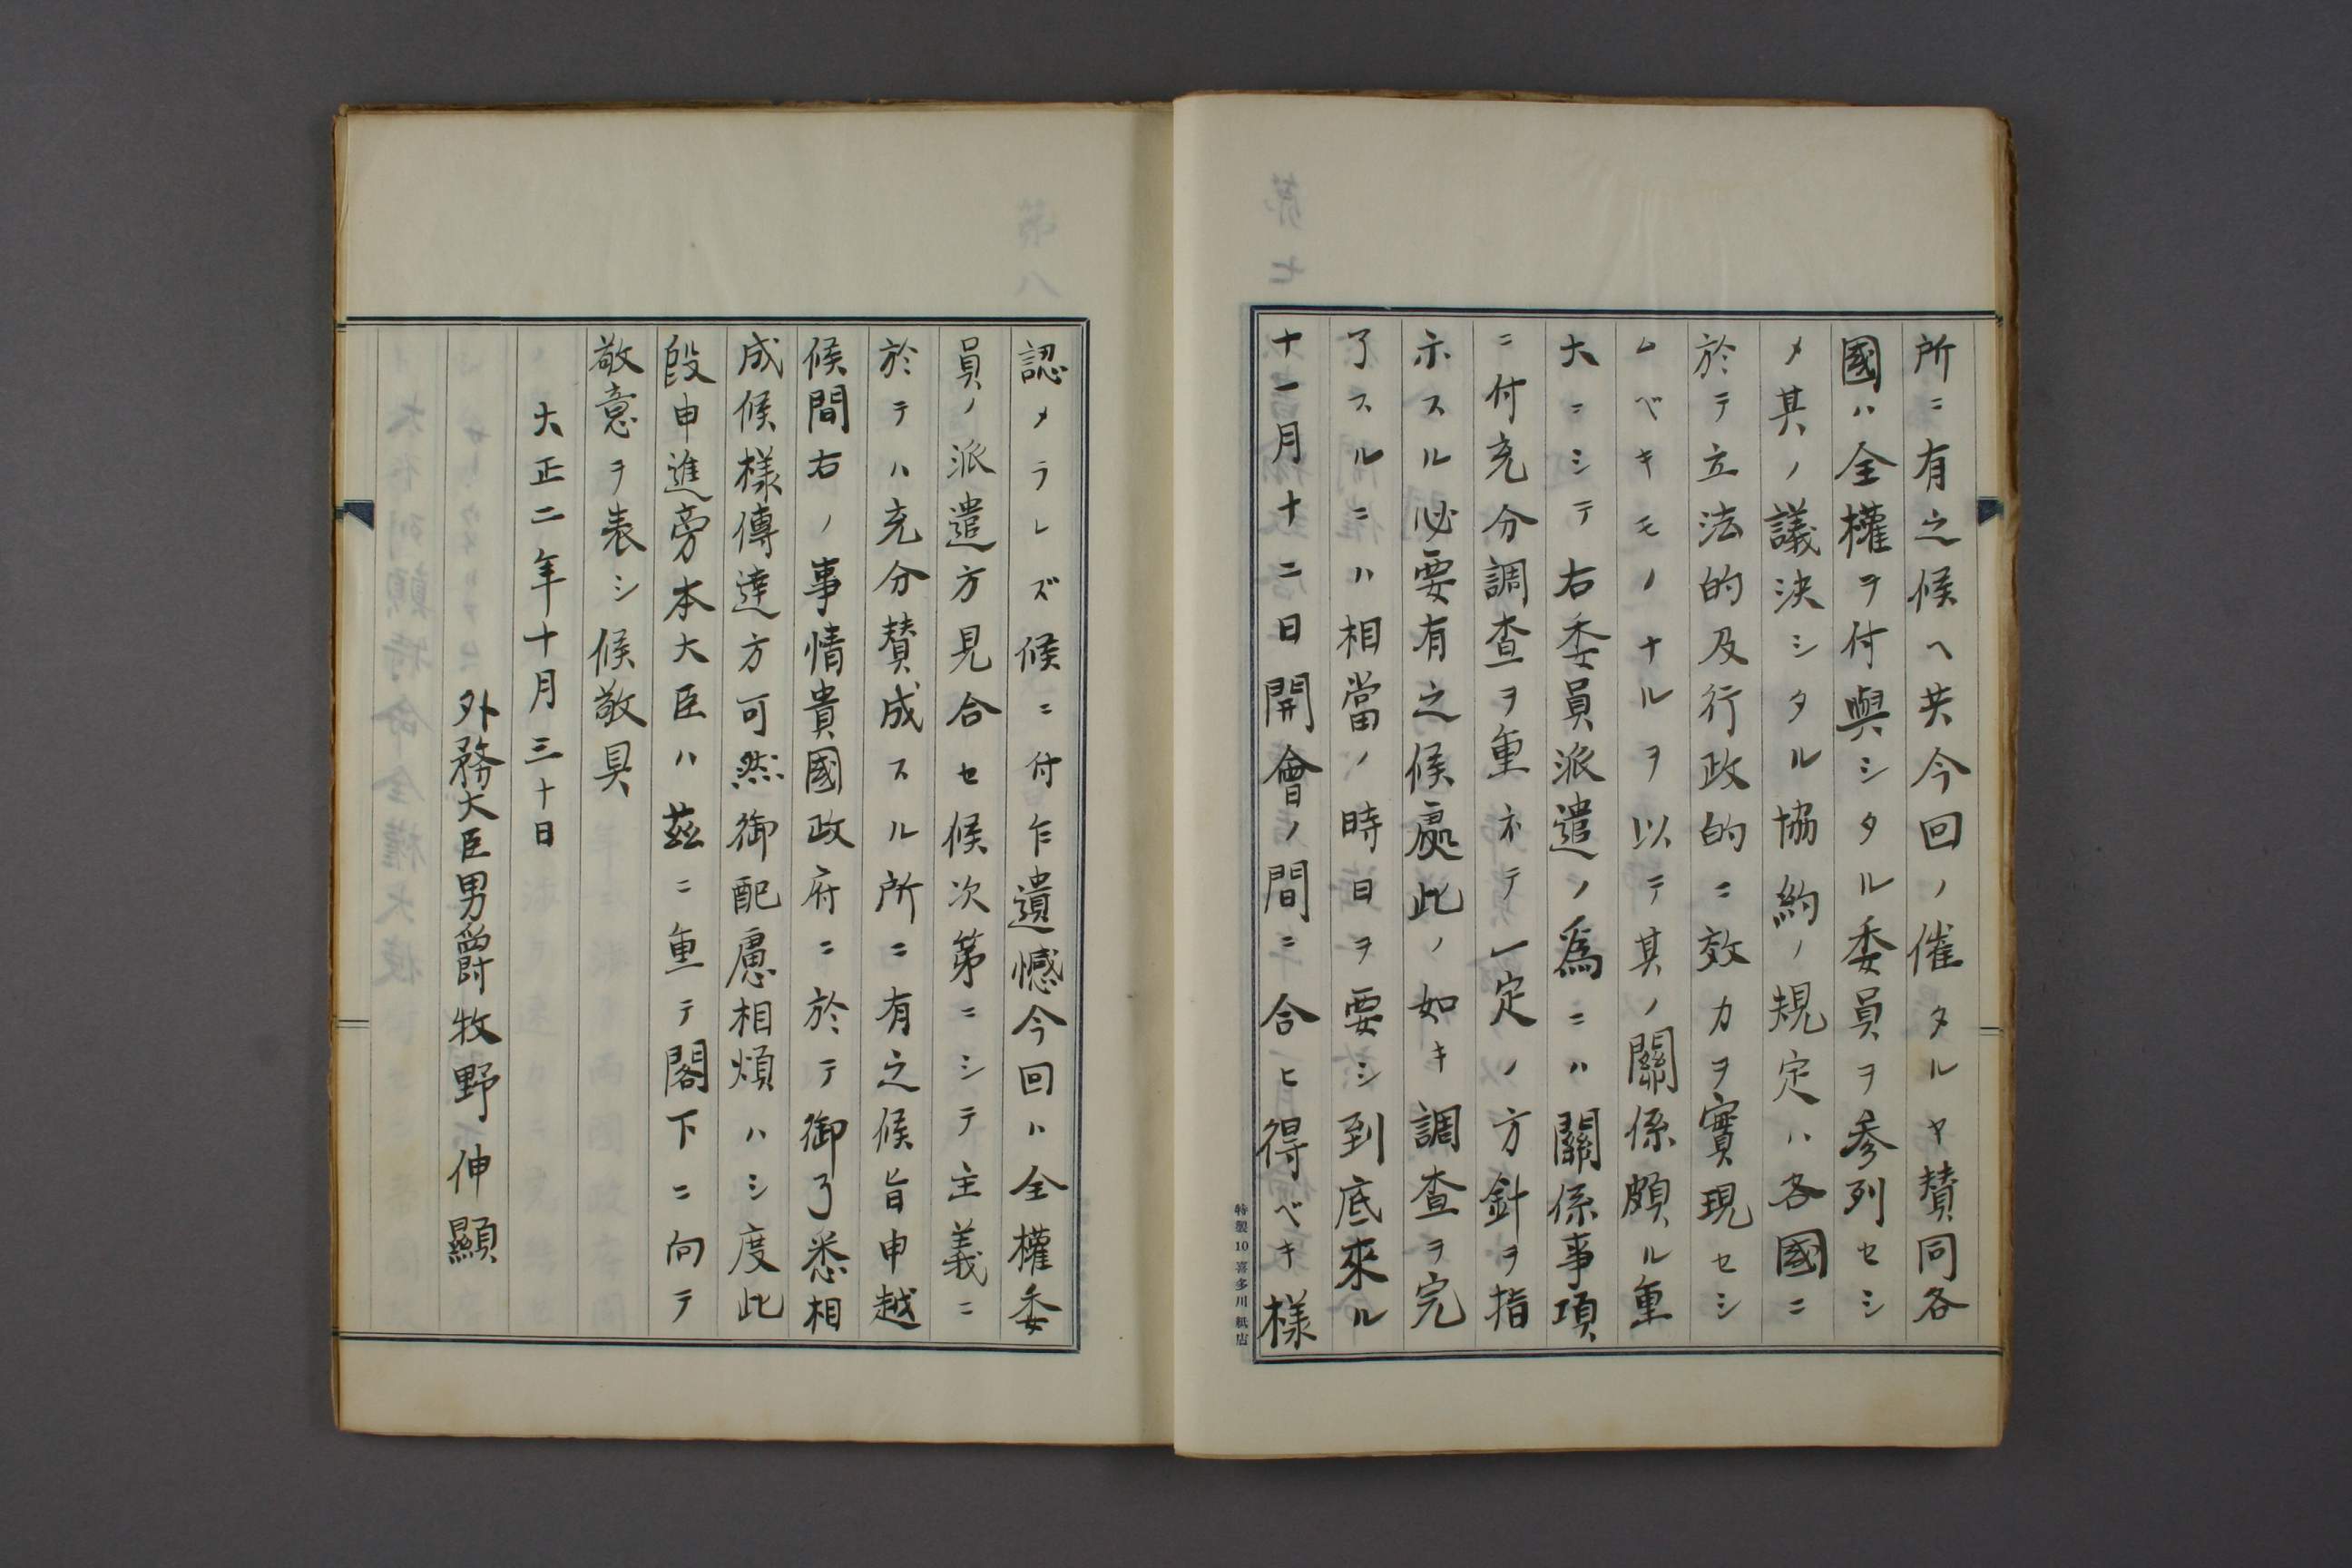 所ニ有之候ヘ共今回ノ催タルヤ賛同各
國ハ全權ヲ付與シタル委員ヲ參列セシ
メ其ノ議決シタル協約ノ規定ハ各國ニ
於テ立法的及行政的ニ效力ヲ實現セシ
ムベキモノナルヲ以テ其ノ關係頗ル重
大ニシテ右委員派遣ノ爲ニハ關係事項
ニ付充分調査ヲ重ネテ一定ノ方針ヲ指
示スル必要有之候處此ノ如キ調査ヲ完
了スルニハ相當ノ時日ヲ要シ到底來ル
十一月十二日開會ノ間ニ合ヒ得ベキ樣
特製10喜多川紙店
認メラレズ候ニ付乍遺憾今回ハ全權委
員ノ派遣方見合セ候次第ニシテ主義ニ
於テハ充分賛成スル所ニ有之候旨申越
候間右ノ事情貴國政府ニ於テ御了悉相
成候樣傳達方可然御配慮相煩ハシ度此
段申進旁本大臣ハ茲ニ重テ閣下ニ向テ
敬意ヲ表シ候敬具
大正二年十月三十日
外務大臣男爵牧野伸顯